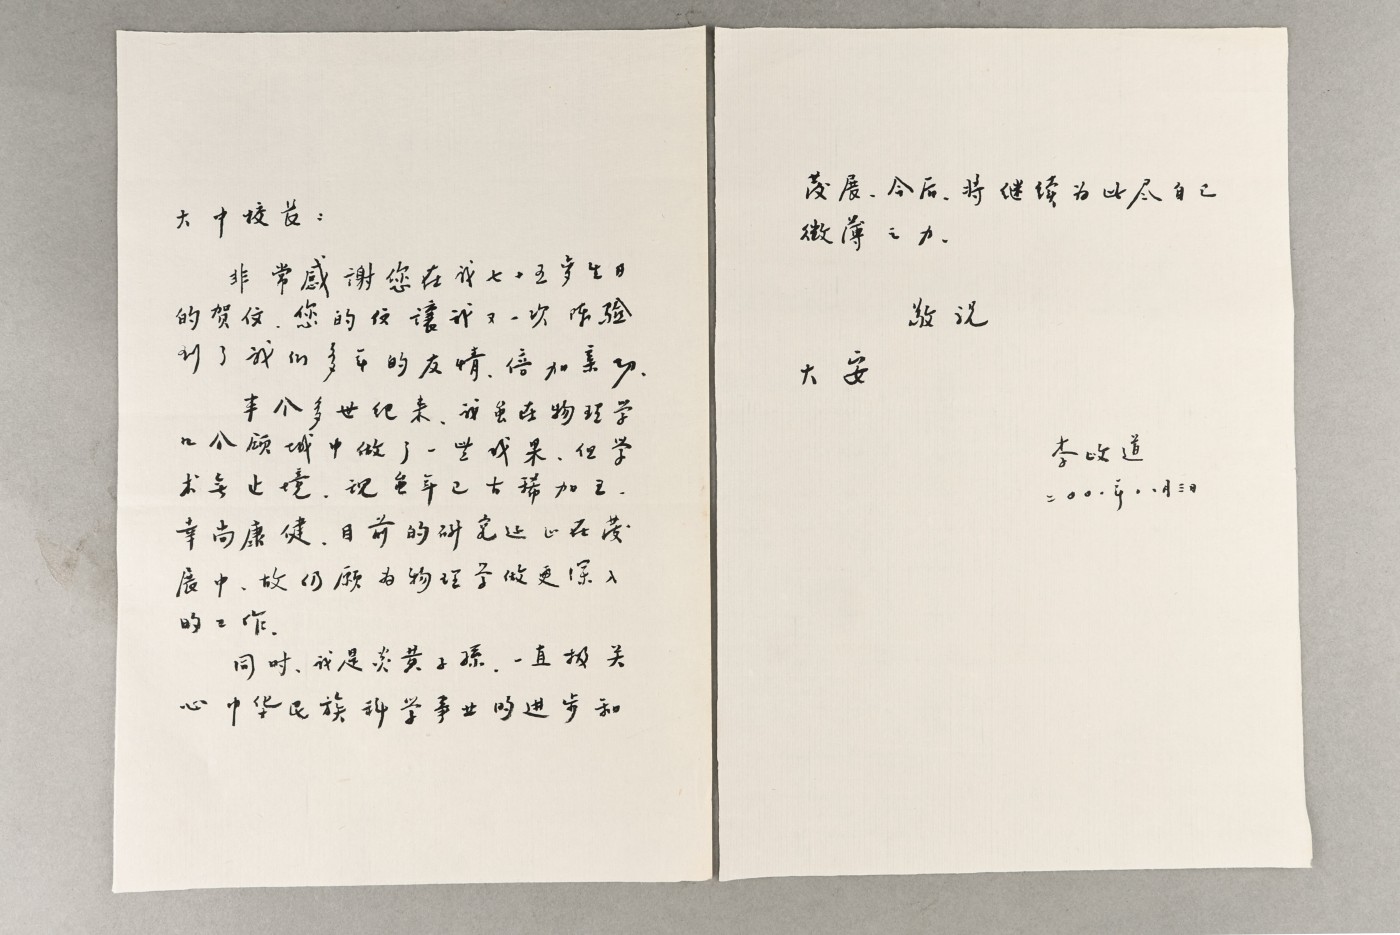 大中校长：
非常感謝您在我七十五岁生日
的贺信．您的信讓我又一次体验
到了我们多年的友情、倍加亲切．
半个多世纪来、我虽在物理学
口个領域中做了一些成果、但学
术無止境．现虽年已古稀加五．
幸尚康健．目前的研究还正在發
展中、故仍願为物理学做更深入
的工作．
同时、我是炎黄子孫．一直极关
心中华民族科学事业的进步和
發展、今后、将继续为此尽自己
微薄之力．
敬祝
大安
李政道
二〇〇一年十一月三日